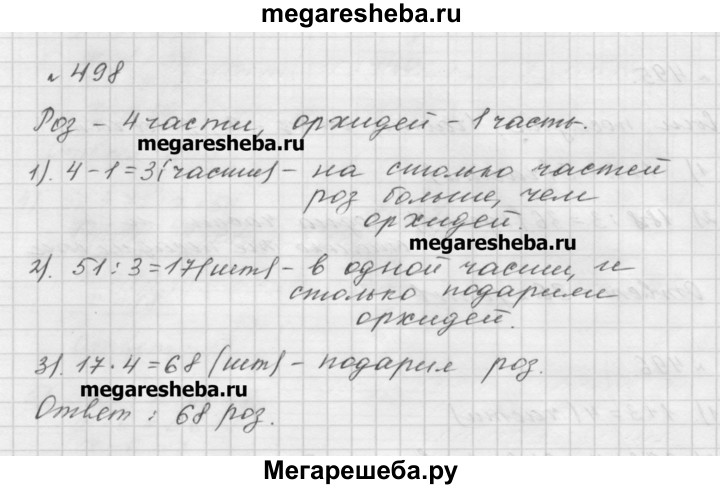 megaresheba.ru
№ 498
Роз – 4 части, орхидей – 1 часть.
megaresheba.ru
1). 4 – 1 = 3 (части) – на столько частей
роз больше, чем
орхидей.
megaresheba.ru
2). 51 : 3 = 17 (шт) – в одной части, и
столько подарили
орхидей.
3). 17 · 4 = 68 (шт) – подарил роз.
megaresheba.ru
Ответ : 68 роз.
Мегарешеба.ру